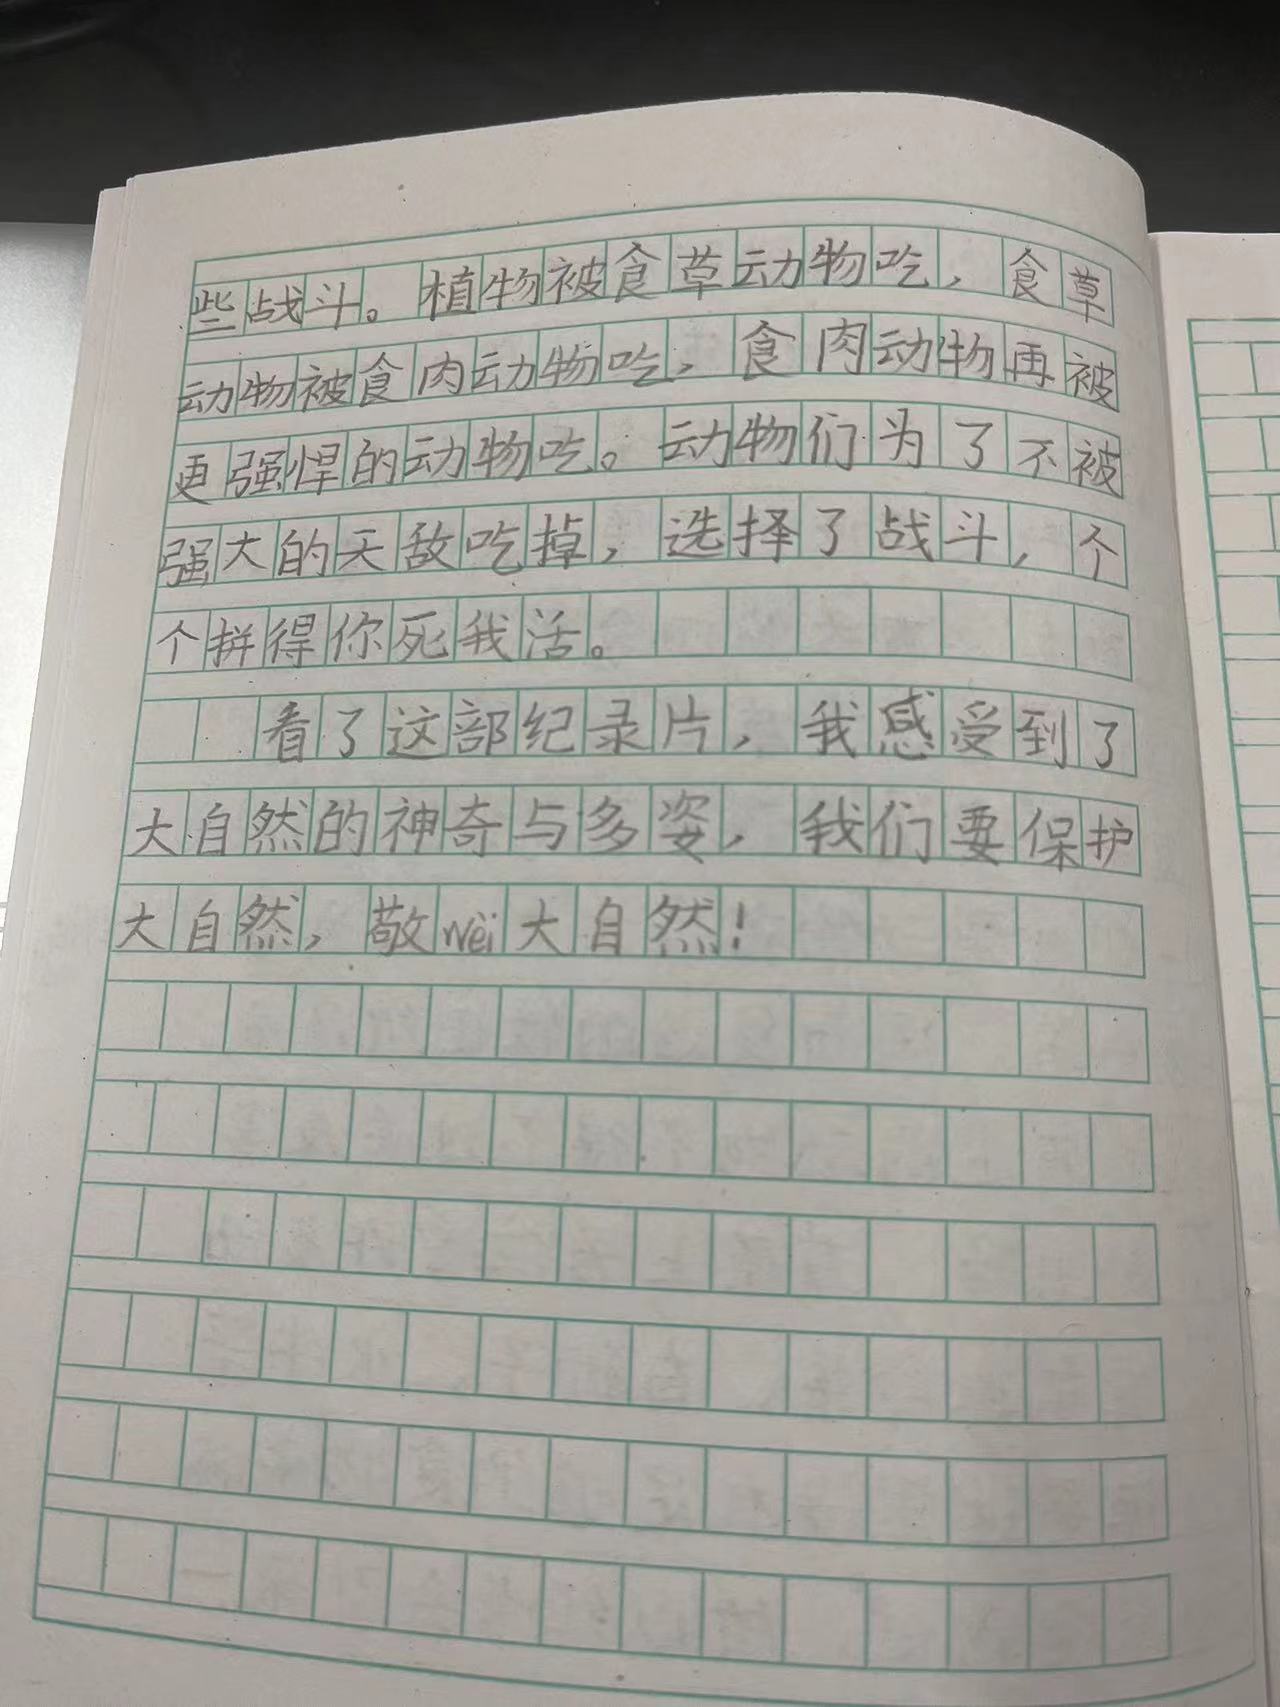 些战斗。植物被食草动物吃，食草
动物被食肉动物吃，食肉动物再被
更强悍的动物吃。动物们为了不被
强大的天敌吃掉，选择了战斗，个
个拼得你死我活。
看了这部纪录片，我感受到了
大自然的神奇与多姿，我们要保护
大自然，敬wèi大自然！